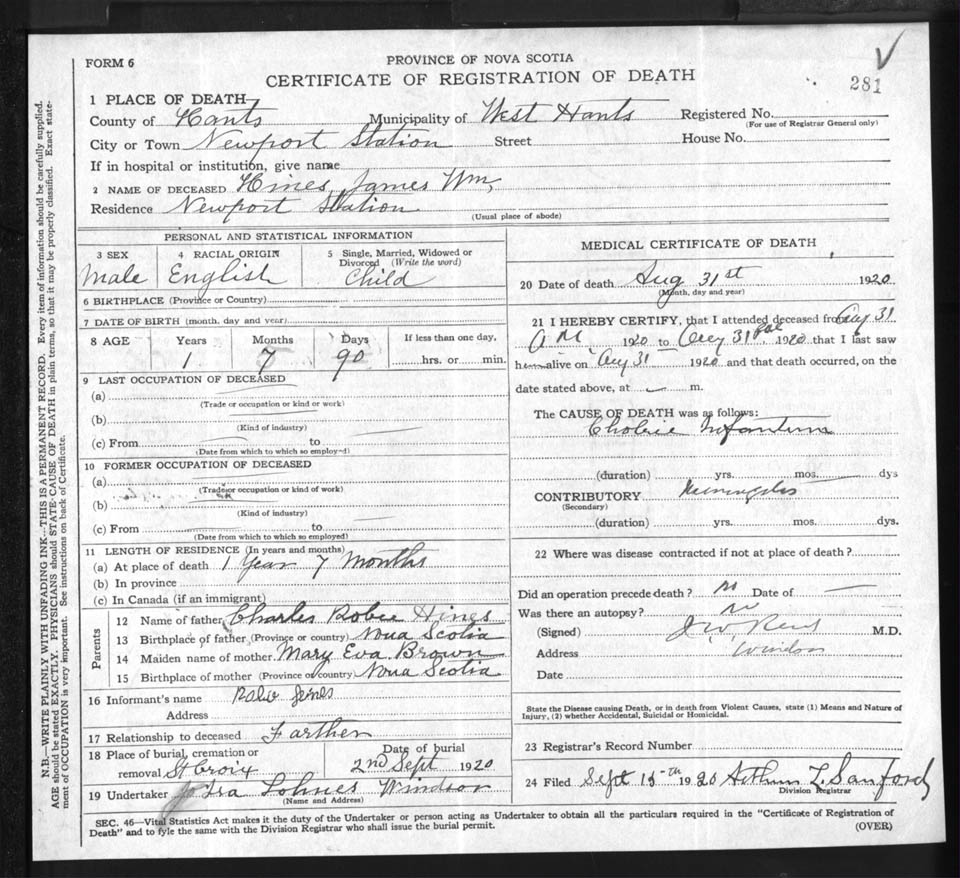 281
FORM 6
PROVINCE OF NOVA SCOTIA
CERTIFICATE OF REGISTRATION OF DEATH
1 PLACE OF DEATH
County of Hants Municipality of West Hants Registered No.
(For use of Registrar General only)
City or Town Newport Station Street House No.
If in hospital or institution, give name
2 NAME OF DECEASED Hines, James Wm,
Residence Newport Station
(Usual place of abode)
PERSONAL AND STATISTICAL INFORMATION
3 SEX 4 RACIAL ORIGIN 5 Single, Married, Widowed or Divorced (Write the word)
Male English Child
6 BIRTHPLACE (Province or Country)
7 DATE OF BIRTH (month, day and year)
8 AGE Years Months Days If less than one day,
1 7 90 hrs. or min.
9 LAST OCCUPATION OF DECEASED
(a)
(Trade or occupation or kind or work)
(b)
(Kind of industry)
(c) From to
(Date from which to which so employed)
10 FORMER OCCUPATION OF DECEASED
(a)
(Trade or occupation or kind of work)
(b)
(Kind of industry)
(c) From to
(Date from which to which so employed)
11 LENGTH OF RESIDENCE (In years and months)
(a) At place of death 1 Year 7 Months
(b) In province
(c) In Canada (if an immigrant)
Parents
12 Name of father Charles Robie Hines
13 Birthplace of father (Province or country) Nova Scotia
14 Maiden name of mother Mary Eva Brown
15 Birthplace of mother (Province or country) Nova Scotia
16 Informant's name
Address
17 Relationship to deceased Farther
18 Place of burial, cremation or removal St Croix
Date of burial
2nd Sept 1920
19 Undertaker Lohnes Windsor
(Name and Address)
MEDICAL CERTIFICATE OF DEATH
20 Date of death Aug 31st 1920
(Month, day and year)
21 I HEREBY CERTIFY, that I attended deceased from Aug 31
1920 to Aug 31 1920 that I last saw
h alive on Aug 31 1920 and that death occurred, on the
date stated above, at m.
The CAUSE OF DEATH was as follows:
Infantum
(duration) yrs. mos. dys
CONTRIBUTORY
(Secondary)
(duration) yrs. mos. dys.
22 Where was disease contracted if not at place of death?
Did an operation precede death? Date of
Was there an autopsy?
(Signed) M.D.
Address Windsor
Date
State the Disease causing Death, or in death from Violent Causes, state (1) Means and Nature of Injury, (2) whether Accidental, Suicidal or Homicidal.
23 Registrar's Record Number
24 Filed Sept 15th 1920 Arthur L. Sanford
Division Registrar
SEC. 46—Vital Statistics Act makes it the duty of the Undertaker or person acting as Undertaker to obtain all the particulars required in the "Certificate of Registration of
Death" and to fyle the same with the Division Registrar who shall issue the burial permit.
(OVER)
N.B.—WRITE PLAINLY WITH UNFADING INK—THIS IS A PERMANENT RECORD. Every item of information should be carefully supplied.
AGE should be stated EXACTLY. PHYSICIANS should STATE CAUSE OF DEATH in plain terms, so that it may be properly classified. Exact state-
ment of OCCUPATION is very important. See instructions on back of Certificate.